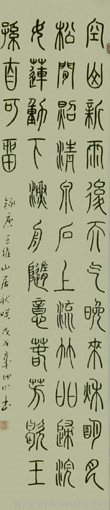 空山新雨後天气晚來秋明月
松間照清泉石上流竹喧歸浣
女蓮動下漁舟隨意春芳歇王
孫自可留
錄唐王維山居秋暝戊戌書